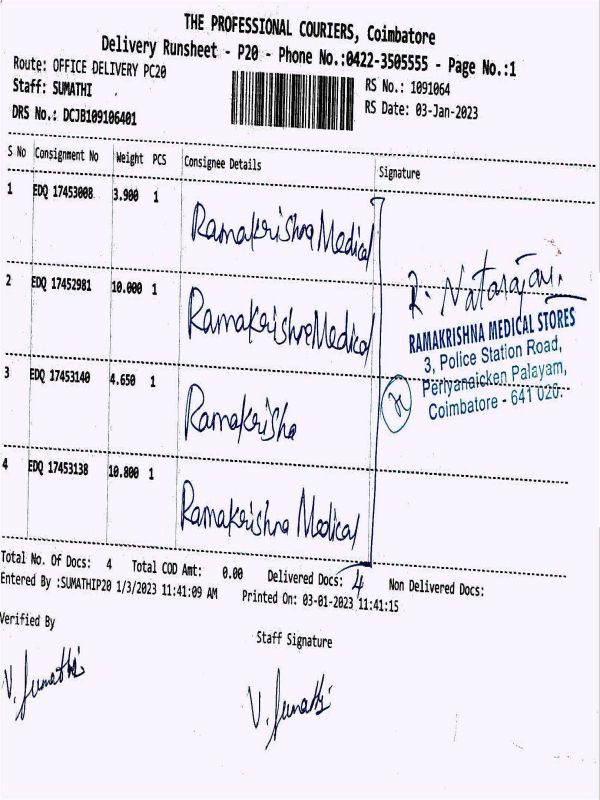 THE PROFESSIONAL COURIERS, Coimbatore
Delivery Runsheet - P20 - Phone No.:0422-3505555 - Page No.:1
Route: OFFICE DELIVERY PC20
Staff: SUMATHI
DRS No.: DCJB109106401
RS No.: 1091064
RS Date: 03-Jan-2023
S No Consignment No Weight PCS Consignee Details Signature
1 EDQ 17453008 3.900 1 Ramakrishna Medical
2 EDQ 17452981 10.000 1 Ramakrishna Medical
R. Natarajan.
RAMAKRISHNA MEDICAL STORES
3, Police Station Road,
Periyanaicken Palayam,
Coimbatore - 641 020.
3 EDQ 17453140 4.650 1 Ramakrisha
4 EDQ 17453138 10.800 1 Ramakrishna Medical
Total No. Of Docs: 4 Total COD Amt: 0.00 Delivered Docs: 4 Non Delivered Docs:
Entered By :SUMATHIP20 1/3/2023 11:41:09 AM Printed On: 03-01-2023 11:41:15
Verified By
Staff Signature
V. Sumathi
V. Sumathi